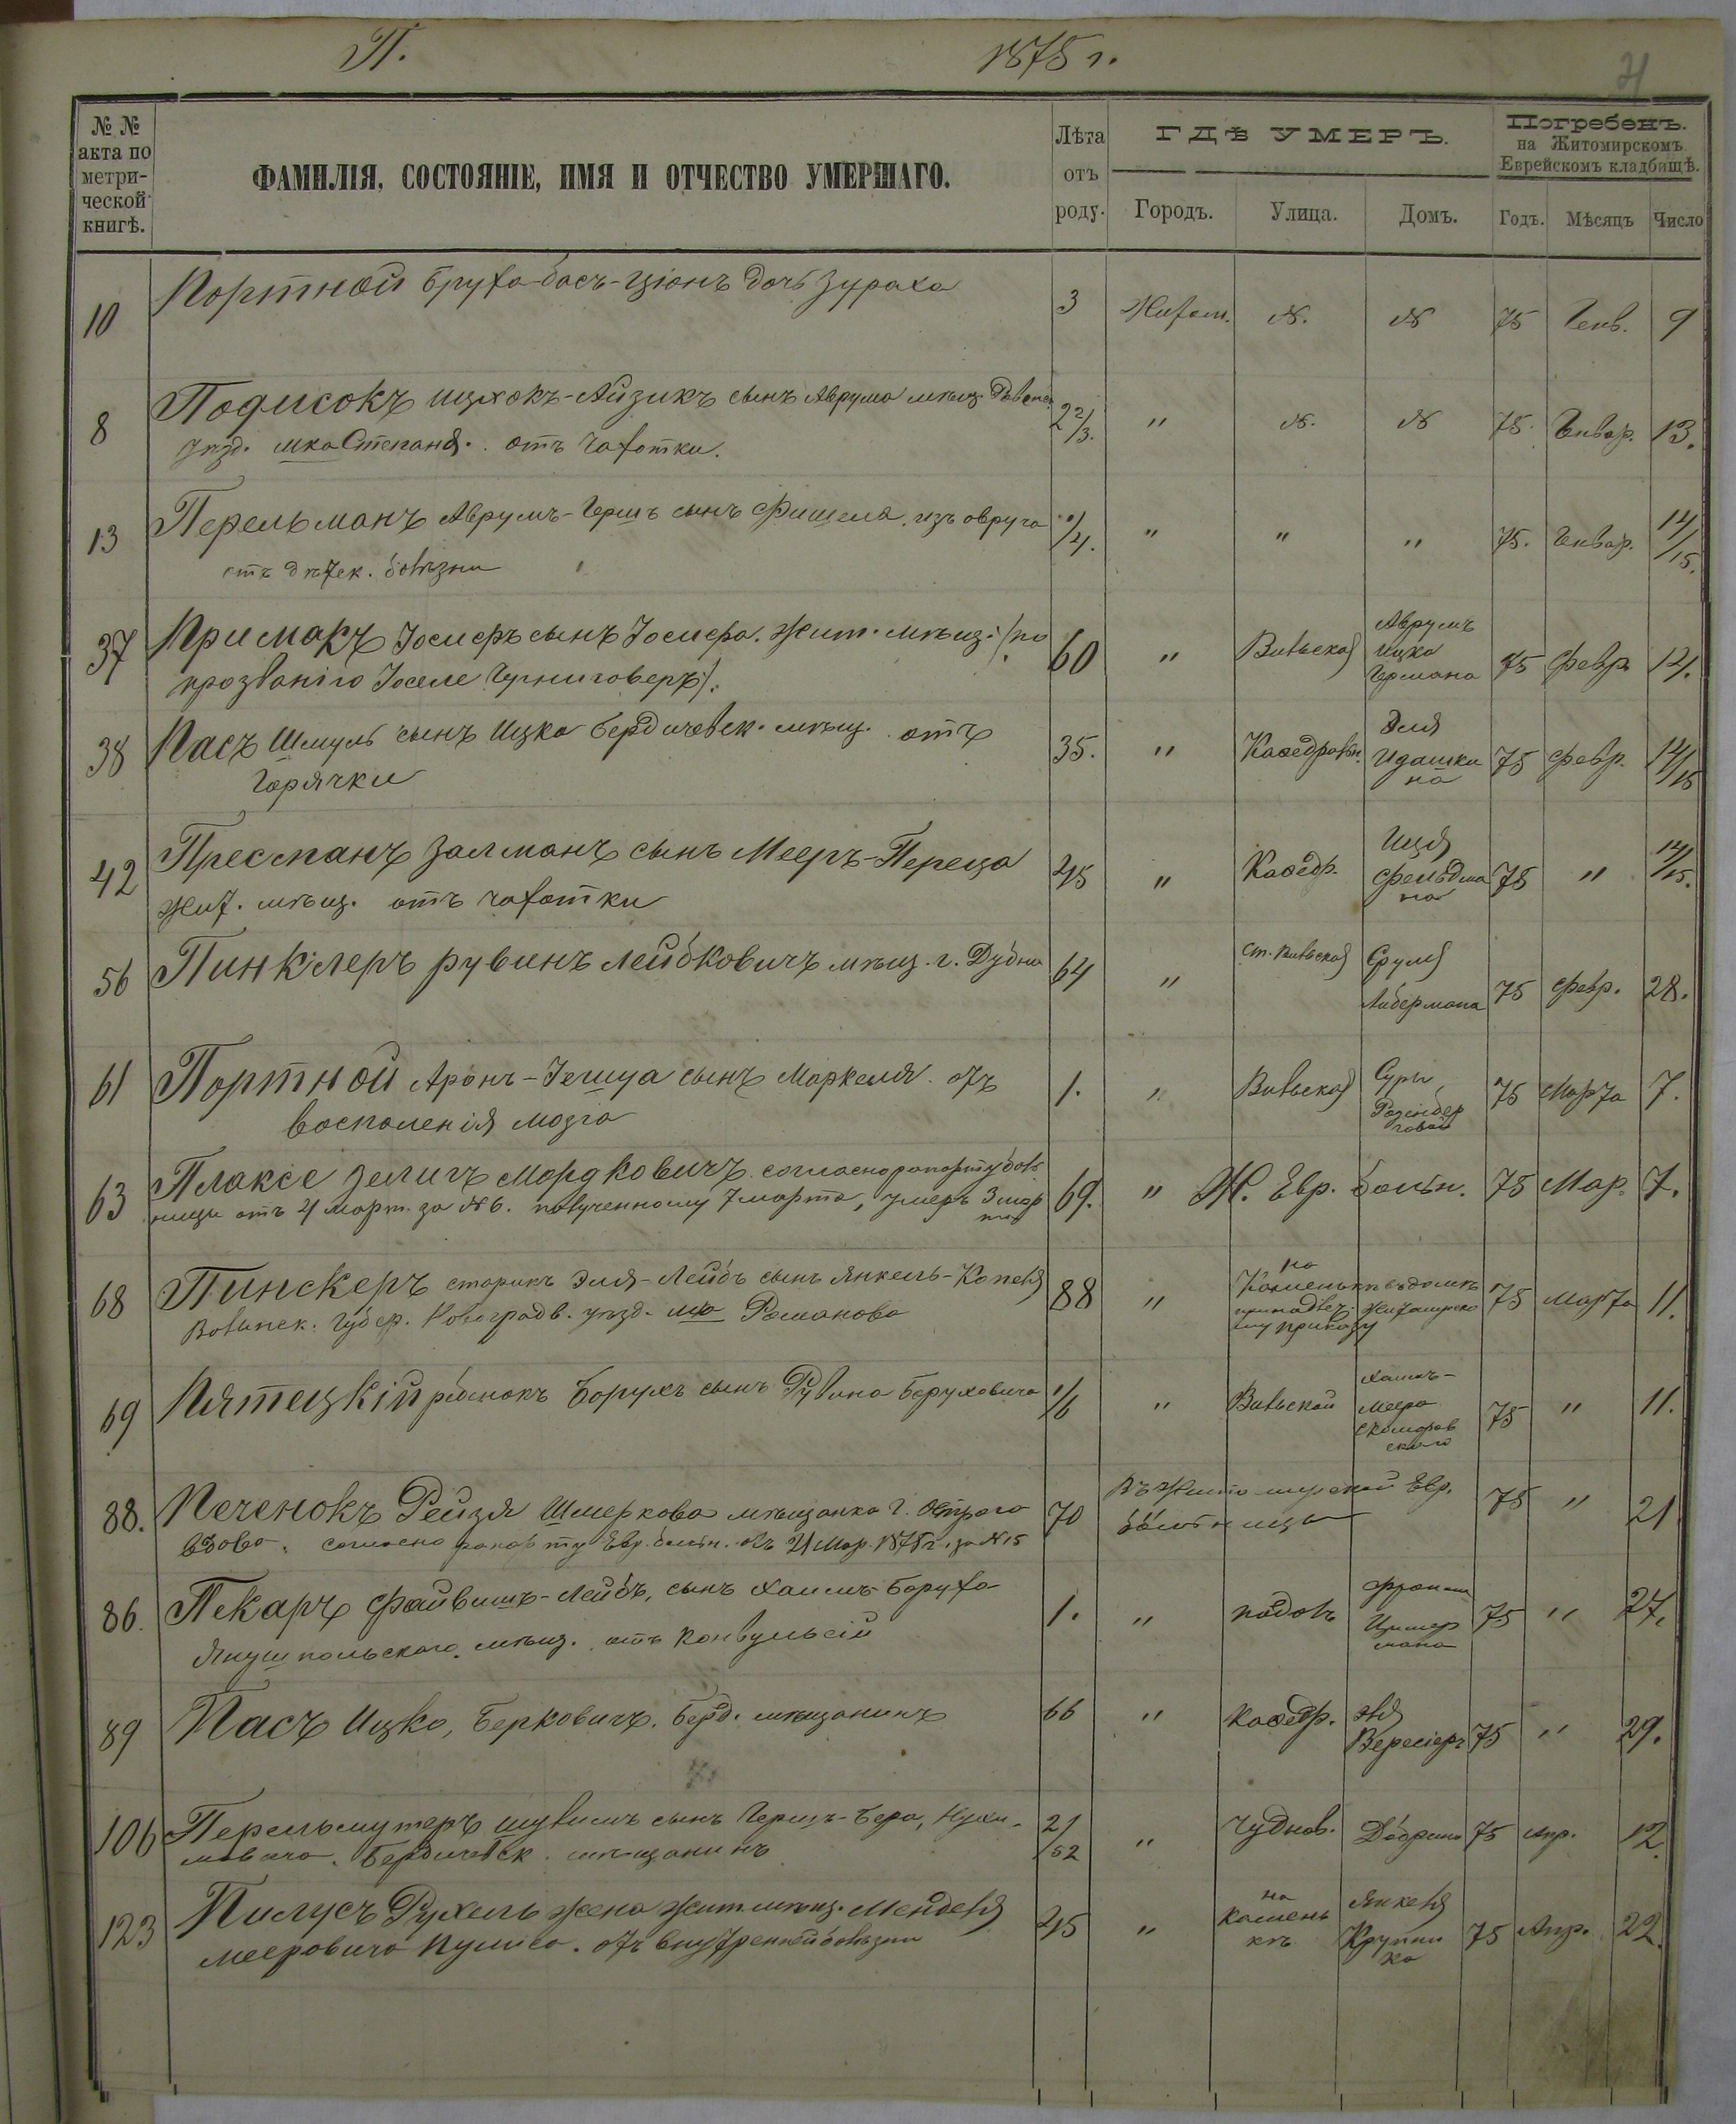 П.
1875 г.
21
№ № акта по метрической книгѣ.
ФАМИЛІЯ, СОСТОЯНІЕ, ИМЯ И ОТЧЕСТВО УМЕРШАГО.
Лѣта отъ роду.
ГДѢ УМЕРЪ.
Погребенъ.
на Житомирскомъ
Еврейскомъ кладбищѣ.
Городъ. Улица. Домъ. Годъ. Мѣсяцъ Число
10 Портной Бруха-басъ-Ціонъ дочь Зураха 3 Житом. N. N 75 Генв. 9
8 Подлисокъ Ицхокъ-Айзикъ сынъ Аврума мѣщ. Ровенс. 2 2/3. " N. N 75. Генвар. 13.
уѣзд. мка Степаня. отъ чахотки.
13 Перельманъ Аврумъ-Гершъ сынъ Фишеля, изъ Овруча 1/4. " " " 75. Генвар. 14/15.
отъ дѣтск. болѣзни
37 Примакъ Іосифъ сынъ Іосифа. жит. мѣщ. (по 60 " Вильская Аврумъ Ицка Германа 75 февр. 14.
прозванію Іоселе Черниговеръ).
38 Пасъ Шмуль сынъ Ицка Бердичевск. мѣщ. отъ 35. " Каѳедральн. Эля Идашкина 75 февр. 14/15
горячки
42 Пресманъ Залманъ сынъ Мееръ-Переца 45 " Каѳедр. Иця Фельдмана 75 " 14/15.
жит. мѣщ. отъ чахотки
56 Пинклеръ Рувинъ Лейбковичъ мѣщ. г. Дубна 64 " ст. Вильская Сруля Либермана 75 февр. 28.
61 Портной Аронъ-Іешуа сынъ Маркеля. отъ 1. " Вильская Суры Розенберговой 75 Марта 7.
воспаленія мозга
63 Плаксе Зелигъ Мордковичъ согласно рапорту боль 69. " Ж. Евр. больн. 75 Мар. 7.
ницы отъ 4 март. за № 6. полученному 7 марта, умеръ 3 марта
68 Пинскеръ старикъ Эля-Лейбъ сынъ Янкель-Копеля 88 " на Каменькѣ въ домѣ принадлеж. Житомирско му приказу 75 Марта 11.
Волынск. Губер. Новоградв. уѣзд. мка Романова
69 Пятецкій ребенокъ Борухъ сынъ Рувина Беруховича 1/6 " Вильской Хаимъ-Меера Скоморовскаго 75 " 11.
88. Печенокъ Рейзя Шмеркова мѣщанка г. Острога 70 Въ Житомирской Евр. больницы 75 " 21
вдова. согласно рапорту Евр. больн. отъ 21 Мар. 1875 г. за № 15
86. Пекаръ Файвишъ-Лейбъ, сынъ Хаимъ-Боруха 1. " подолъ Цимермана 75 " 27.
Янушпольскаго мѣщ. отъ конвульсій
89 Пасъ Ицко, Берковичъ. Берд. мѣщанинъ 66 " Каѳедр. 75 " 29.
106 Перельмутеръ Шулимъ сынъ Гершъ-Бера, Нухи- 21/52 " Чуднов. 75 Апр. 12.
мовича. Бердичевск. мѣщанинъ
123 Пилусъ Рухель жена жит. мѣщ. Менделя 45 " на каменькѣ Янкеля Крупника 75 Апр. 22.
Мееровича Пулиса. отъ внутренней болѣзни